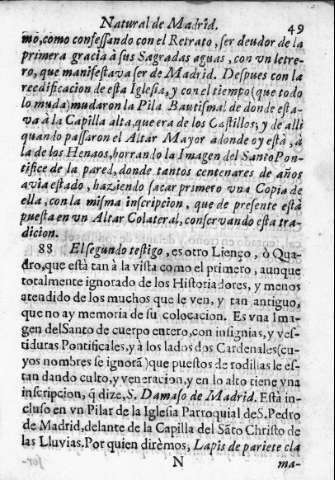 Natural de Madrid. 49
mo, como confessando con el Retrato, ser deudor de la
primera gracia à sus Sagradas aguas, con vn letre-
ro, que manifestava ser de Madrid. Despues con la
reedificacion de esta Iglesia, y con el tiempo (que todo
lo muda) mudaron la Pila Bautismal de donde esta-
va à la Capilla alta, que era de los Castillos; y de alli
quando passaron el Altar Mayor adonde oy està, à
la de los Henaos, borrando la Imagen del Santo Pon-
tifice de la pared, donde tantos centenares de años
avia estado, haziendo sacar primero vna Copia de
ella, con la misma inscripcion, que de presente està
puesta en vn Altar Colateral, conservando esta tra-
dicion.
88 El segundo testigo, es otro Lienço, ò Qua-
dro, que està tan à la vista como el primero, aunque
totalmente ignorado de los Historiadores, y menos
atendido de los muchos que le ven, y tan antiguo,
que no ay memoria de su colocacion. Es vna Ima-
gen del Santo de cuerpo entero, con insignias, y ves-
tiduras Pontificales, y à los lados dos Cardenales (cu-
yos nombres se ignorã) que puestos de rodillas le es-
tan dando culto, y veneracion, y en lo alto tiene vna
inscripcion, q̃ dize, S. Damaso de Madrid. Està in-
cluso en vn Pilar de la Iglesia Parroquial de S. Pedro
de Madrid, delante de la Capilla del Sãto Christo de
las Lluvias. Por quien dirèmos, Lapis de pariete cla
N ma-